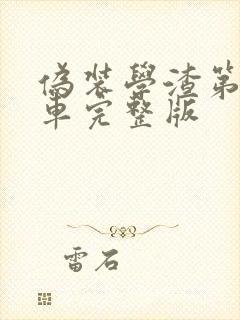 偽裝學渣第
車完整版
雷石